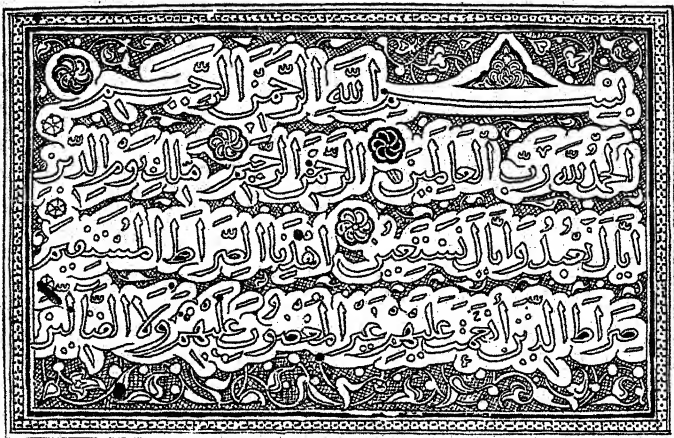 بِسْمِ اللَّهِ الرَّحْمَٰنِ الرَّحِيمِ
الْحَمْدُ لِلَّهِ رَبِّ الْعَالَمِينَ الرَّحْمَٰنِ الرَّحِيمِ مَلِكِ يَوْمِ الدِّينِ
إِيَّاكَ نَعْبُدُ وَإِيَّاكَ نَسْتَعِينُ اهْدِنَا الصِّرَاطَ الْمُسْتَقِيمَ
صِرَاطَ الَّذِينَ أَنْعَمْتَ عَلَيْهِمْ غَيْرِ الْمَغْضُوبِ عَلَيْهِمْ وَلَا الضَّالِّينَ